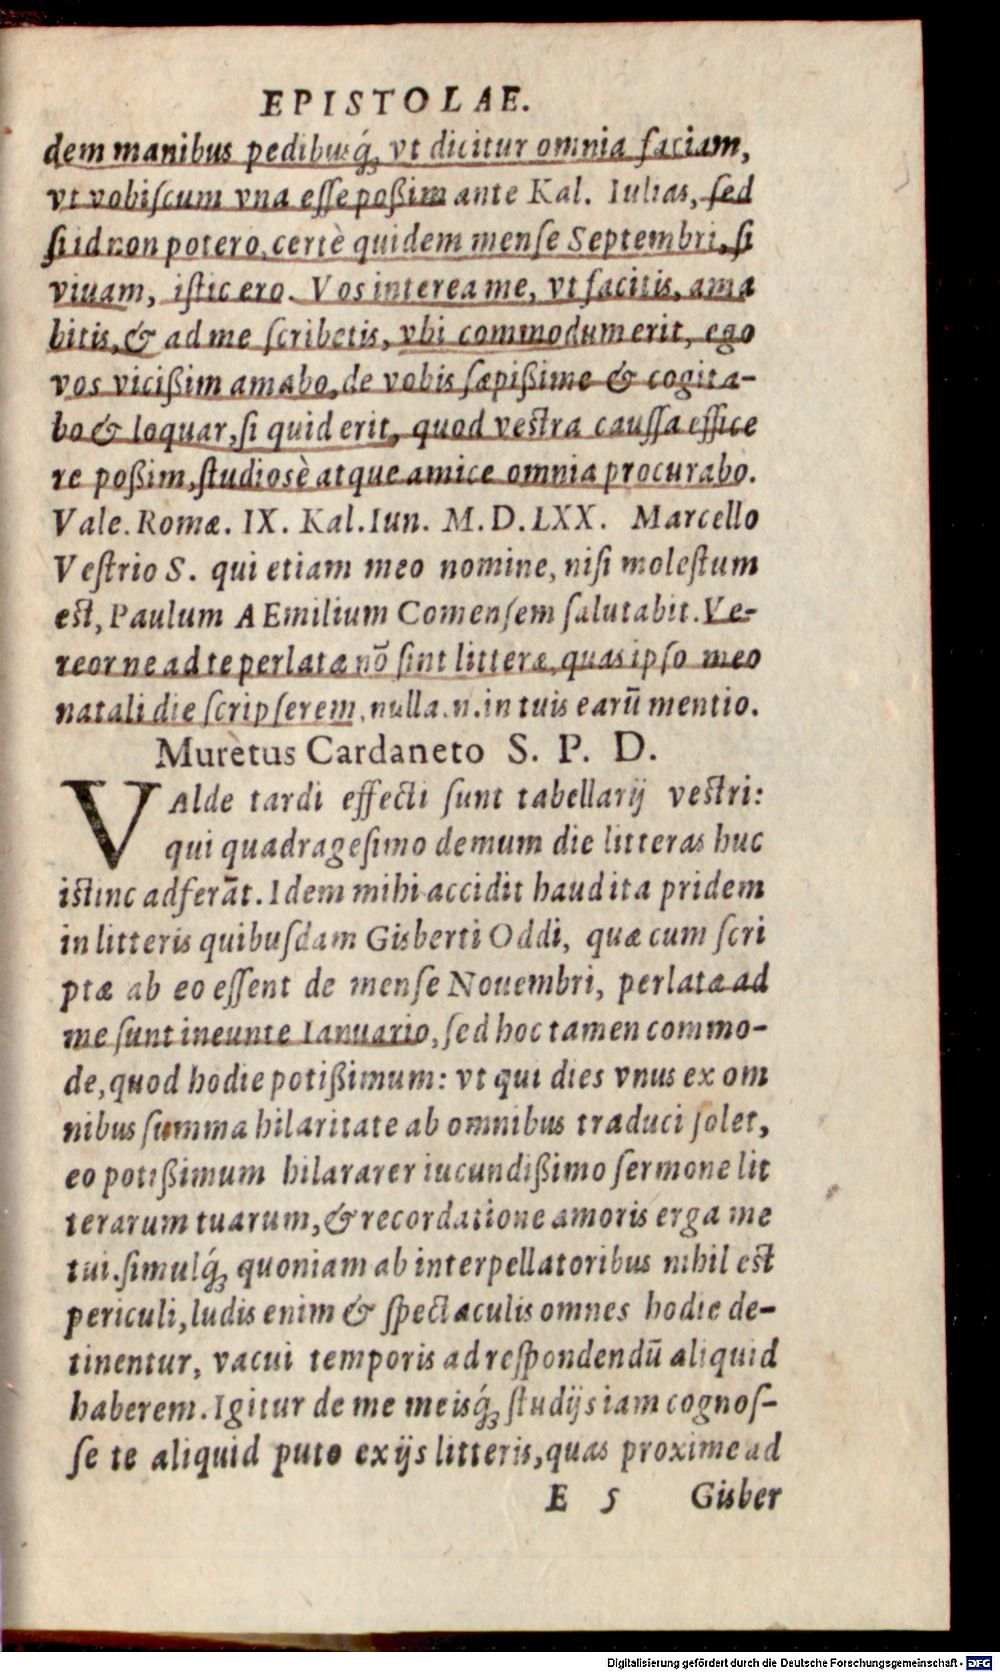 EPISTOLAE.
dem manibus pedibusq́;, vt dicitur omnia faciam,
vt vobiſcum vna eſſe poßim ante Kal. Iulias, ſed
ſi id non potero, certè quidem menſe Septembri, ſi
viuam, iſtic ero. Vos interea me, vt facitis, ama
bitis, & ad me ſcribetis, vbi commodum erit, ego
vos vicißim amabo, de vobis ſæpißime & cogita-
bo & loquar, ſi quid erit, quod veſtra cauſſa effice
re poßim, ſtudiosè atque amice omnia procurabo.
Vale. Romæ. IX. Kal. Iun. M. D. LXX. Marcello
Veſtrio S. qui etiam meo nomine, niſi moleſtum
eſt, Paulum AEmilium Comenſem ſalutabit. Ve-
reor ne ad te perlatæ nō ſint litteræ, quas ipſo meo
natali die ſcripſerem, nulla.n.in tuis earū mentio.
Muretus Cardaneto S. P. D.
VAlde tardi effecti ſunt tabellarij veſtri:
qui quadrageſimo demum die litteras huc
iſtinc adferāt. Idem mihi accidit haud ita pridem
in litteris quibuſdam Gisberti Oddi, quæ cum ſcri
ptæ ab eo eſſent de menſe Nouembri, perlatæ ad
me ſunt ineunte Ianuario, ſed hoc tamen commo-
de, quod hodie potißimum: vt qui dies vnus ex om
nibus ſumma hilaritate ab omnibus traduci ſolet,
eo potißimum hilararer iucundißimo ſermone lit
terarum tuarum, & recordatione amoris erga me
tui. ſimulq́; quoniam ab interpellatoribus nihil eſt
periculi, ludis enim & ſpectaculis omnes hodie de-
tinentur, vacui temporis ad reſpondendū aliquid
haberem. Igitur de me meisq́; ſtudijs iam cognoſ-
ſe te aliquid puto ex ijs litteris, quas proxime ad
E 5 Gisber
Digitalisierung gefördert durch die Deutsche Forschungsgemeinschaft - DFG